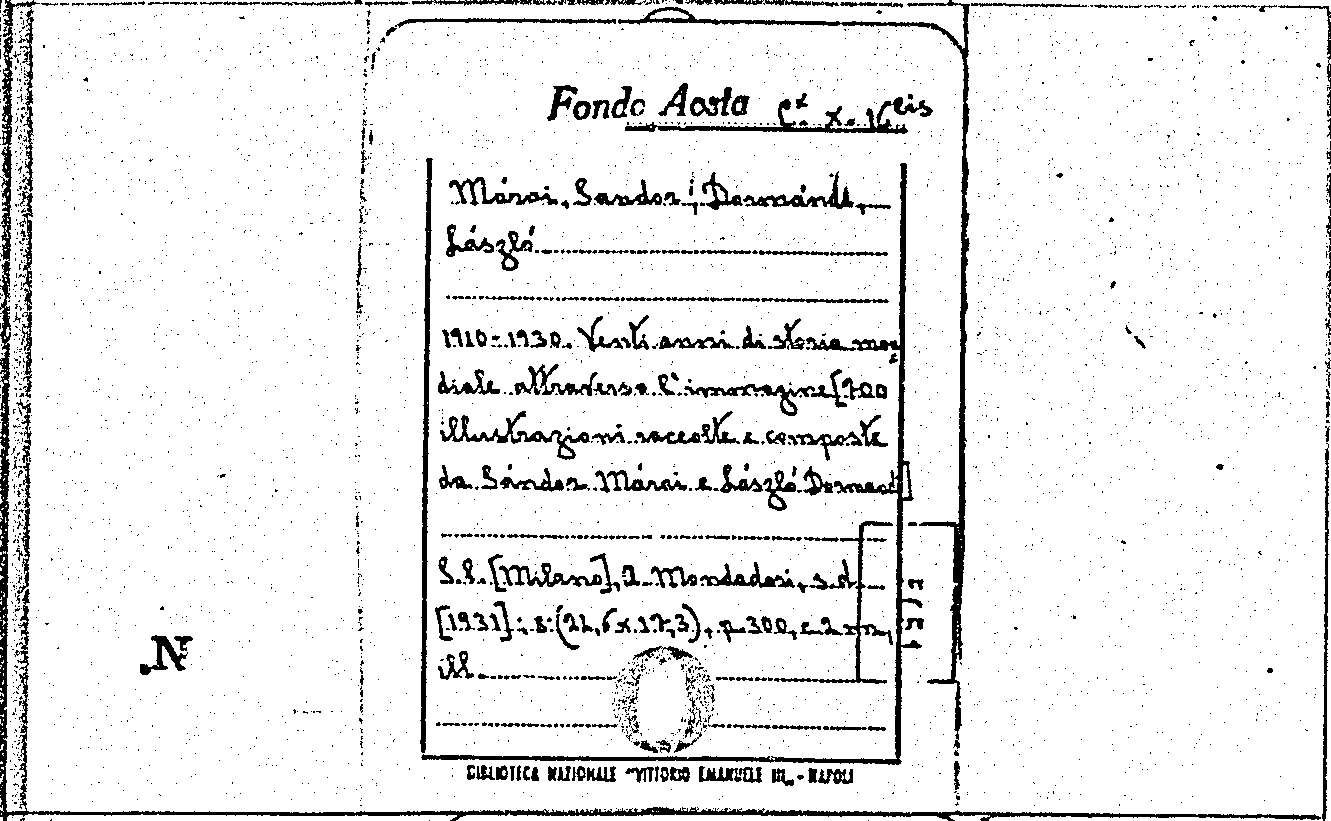 Fondo Aosta C.x x. 16 bis
Márai, Sandor; Dormándi,
László
1910-1930. Venti anni di storia mon
diale attraverso l'immagine [700
illustrazioni raccolte e composte
da Sándor Márai e László
S.l. [Milano], A. Mondadori, s.d.
[1931]; 8° p. 300, c. 2 nn,
ill.
N.
BIBLIOTECA NAZIONALE "VITTORIO EMANUELE III„ - NAPOLI